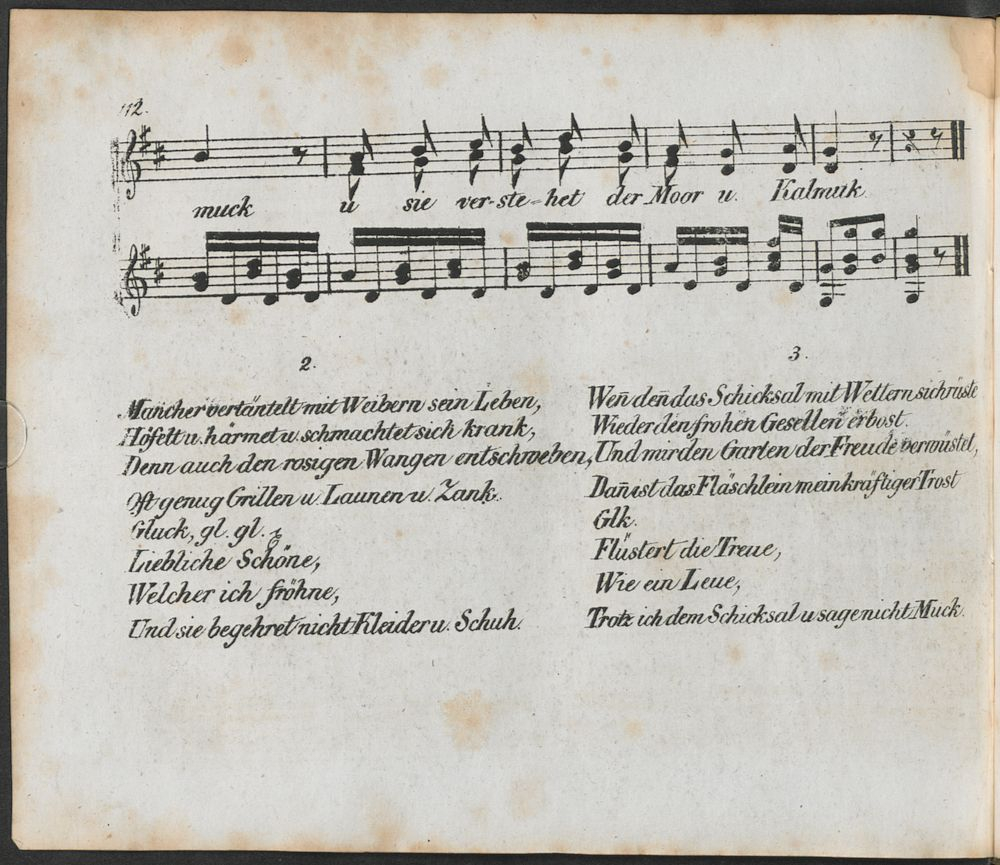 112.
muck u sie ver-ste-het der Moor u. Kalmuk.
2.
Mancher vertäntelt mit Weibern sein Leben,
Höfelt u. härmet u. schmachtet sich krank,
Denn auch den rosigen Wangen entschweben,
Oft genug Grillen u. Launen u. Zank.
Gluck, gl. gl.
Liebliche Schöne,
Welcher ich fröhne,
Und sie begehret nicht Kleider u. Schuh.
3.
Wen̄ den̄ das Schicksal mit Wettern sich rüste
Wieder den frohen Gesellen erbost.
Und mir den Garten der Freude verwüstet,
Dan̄ ist das Fläschlein mein kräftiger Trost
Glk.
Flüstert die Treue,
Wie ein Leue,
Trotz ich dem Schicksal u sage nicht Muck.